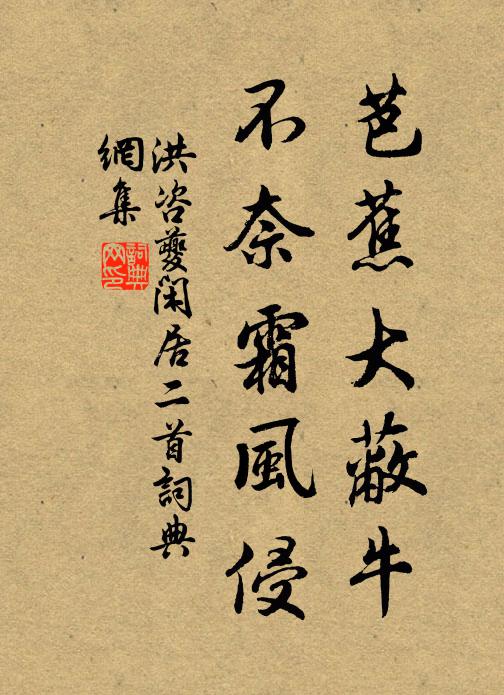 芭蕉大蔽牛
不奈霜風侵
洪咨夔閑居二首詞典
網集
詞典
网印